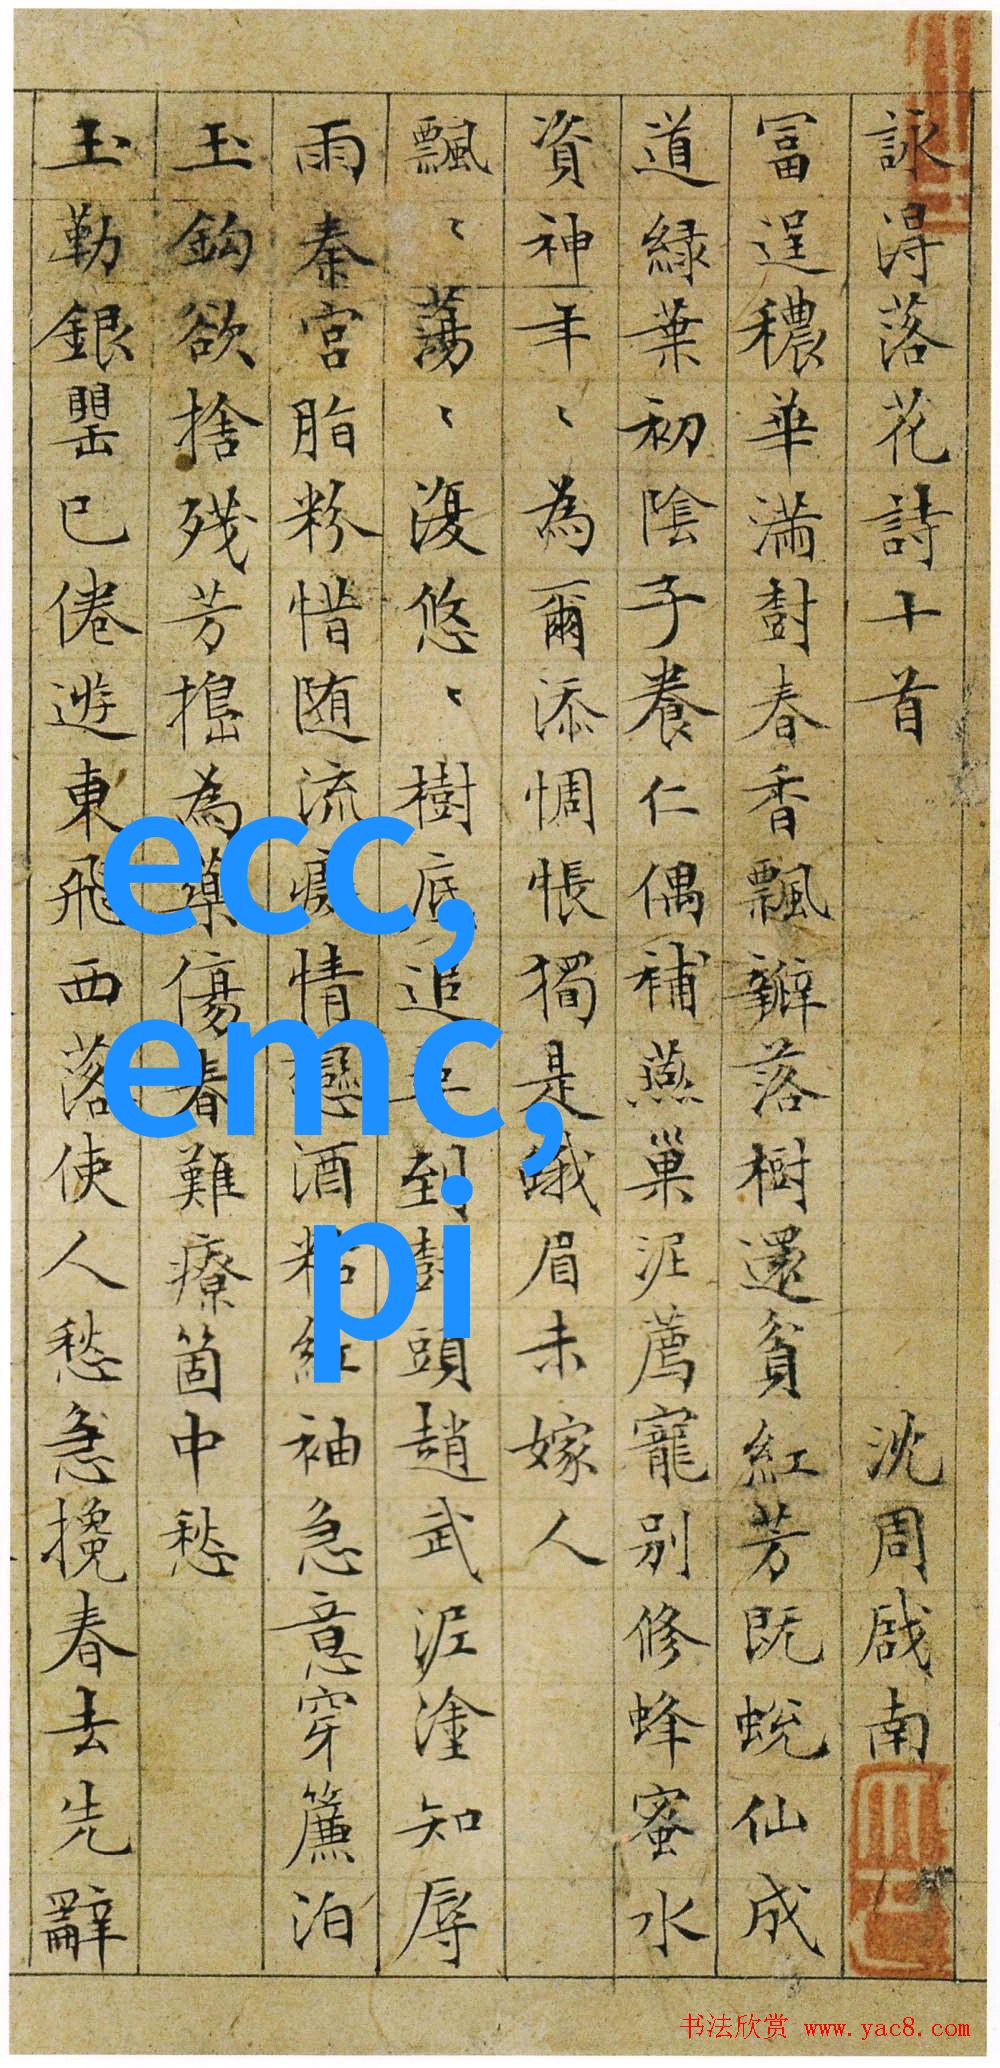 詠得落花詩十首 沈周啟南
富逞穠華滿樹春香飄瓣落樹還貧紅芳既蛻仙成
道緑葉初陰子養仁偶補燕巢泥薦寵別修蜂蜜水
資神年〻為爾添惆悵獨是蛾眉未嫁人
飄〻蕩〻復悠〻樹底追到樹頭趙武泥塗知辱
雨秦宮脂粉惜随流癡情戀酒粘紅袖急意穿簾泊
玉鈎欲捨殘芳搗為藥傷春難療箇中愁
玉勒銀罌已倦遊東飛西落使人愁急攙春去先辭
ecc,
emc,
pi
书法欣赏 www.yac8.com